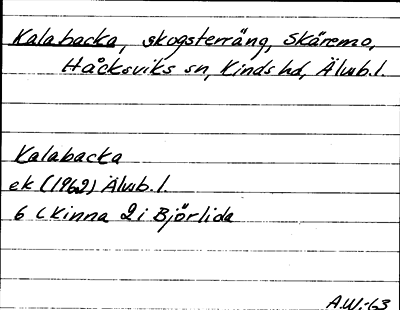 Kalabacka, skogsterräng, Skäremo,
Håcksviks sn, Kinds hd, Älvsb.l.
Kalabacka
ek (1962) Älvsb.l.
6 C Kinna 2 i Björlida
A.W.-63